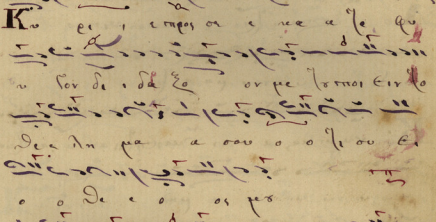 Κυ ρι ι ε προς σε ε κα α τε φυ
υ γον δι ι δα ξο ον με του ποι ειν το
θε ε λη μα α σου ο ο τι συ ει
ο ο θε ε ο ος μου